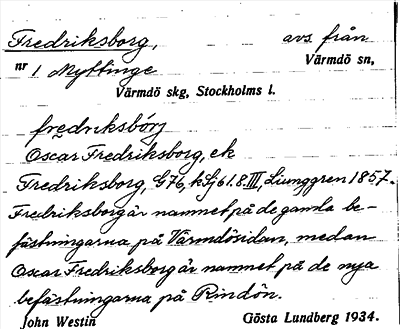 Fredriksborg, avs. från
nr 1 Myttinge Värmdö sn,
Värmdö skg, Stockholms l.
fredriksbórj
Oscar Fredriksborg, ek
Fredriksborg, G76, kLj 61.8.III, Ljunggren 1857.
Fredriksborg är namnet på de gamla be-
fästningarna på Värmdösidan, medan
Oscar Fredriksborg är namnet på de nya
befästningarna på Rindön.
John Westin Gösta Lundberg 1934.